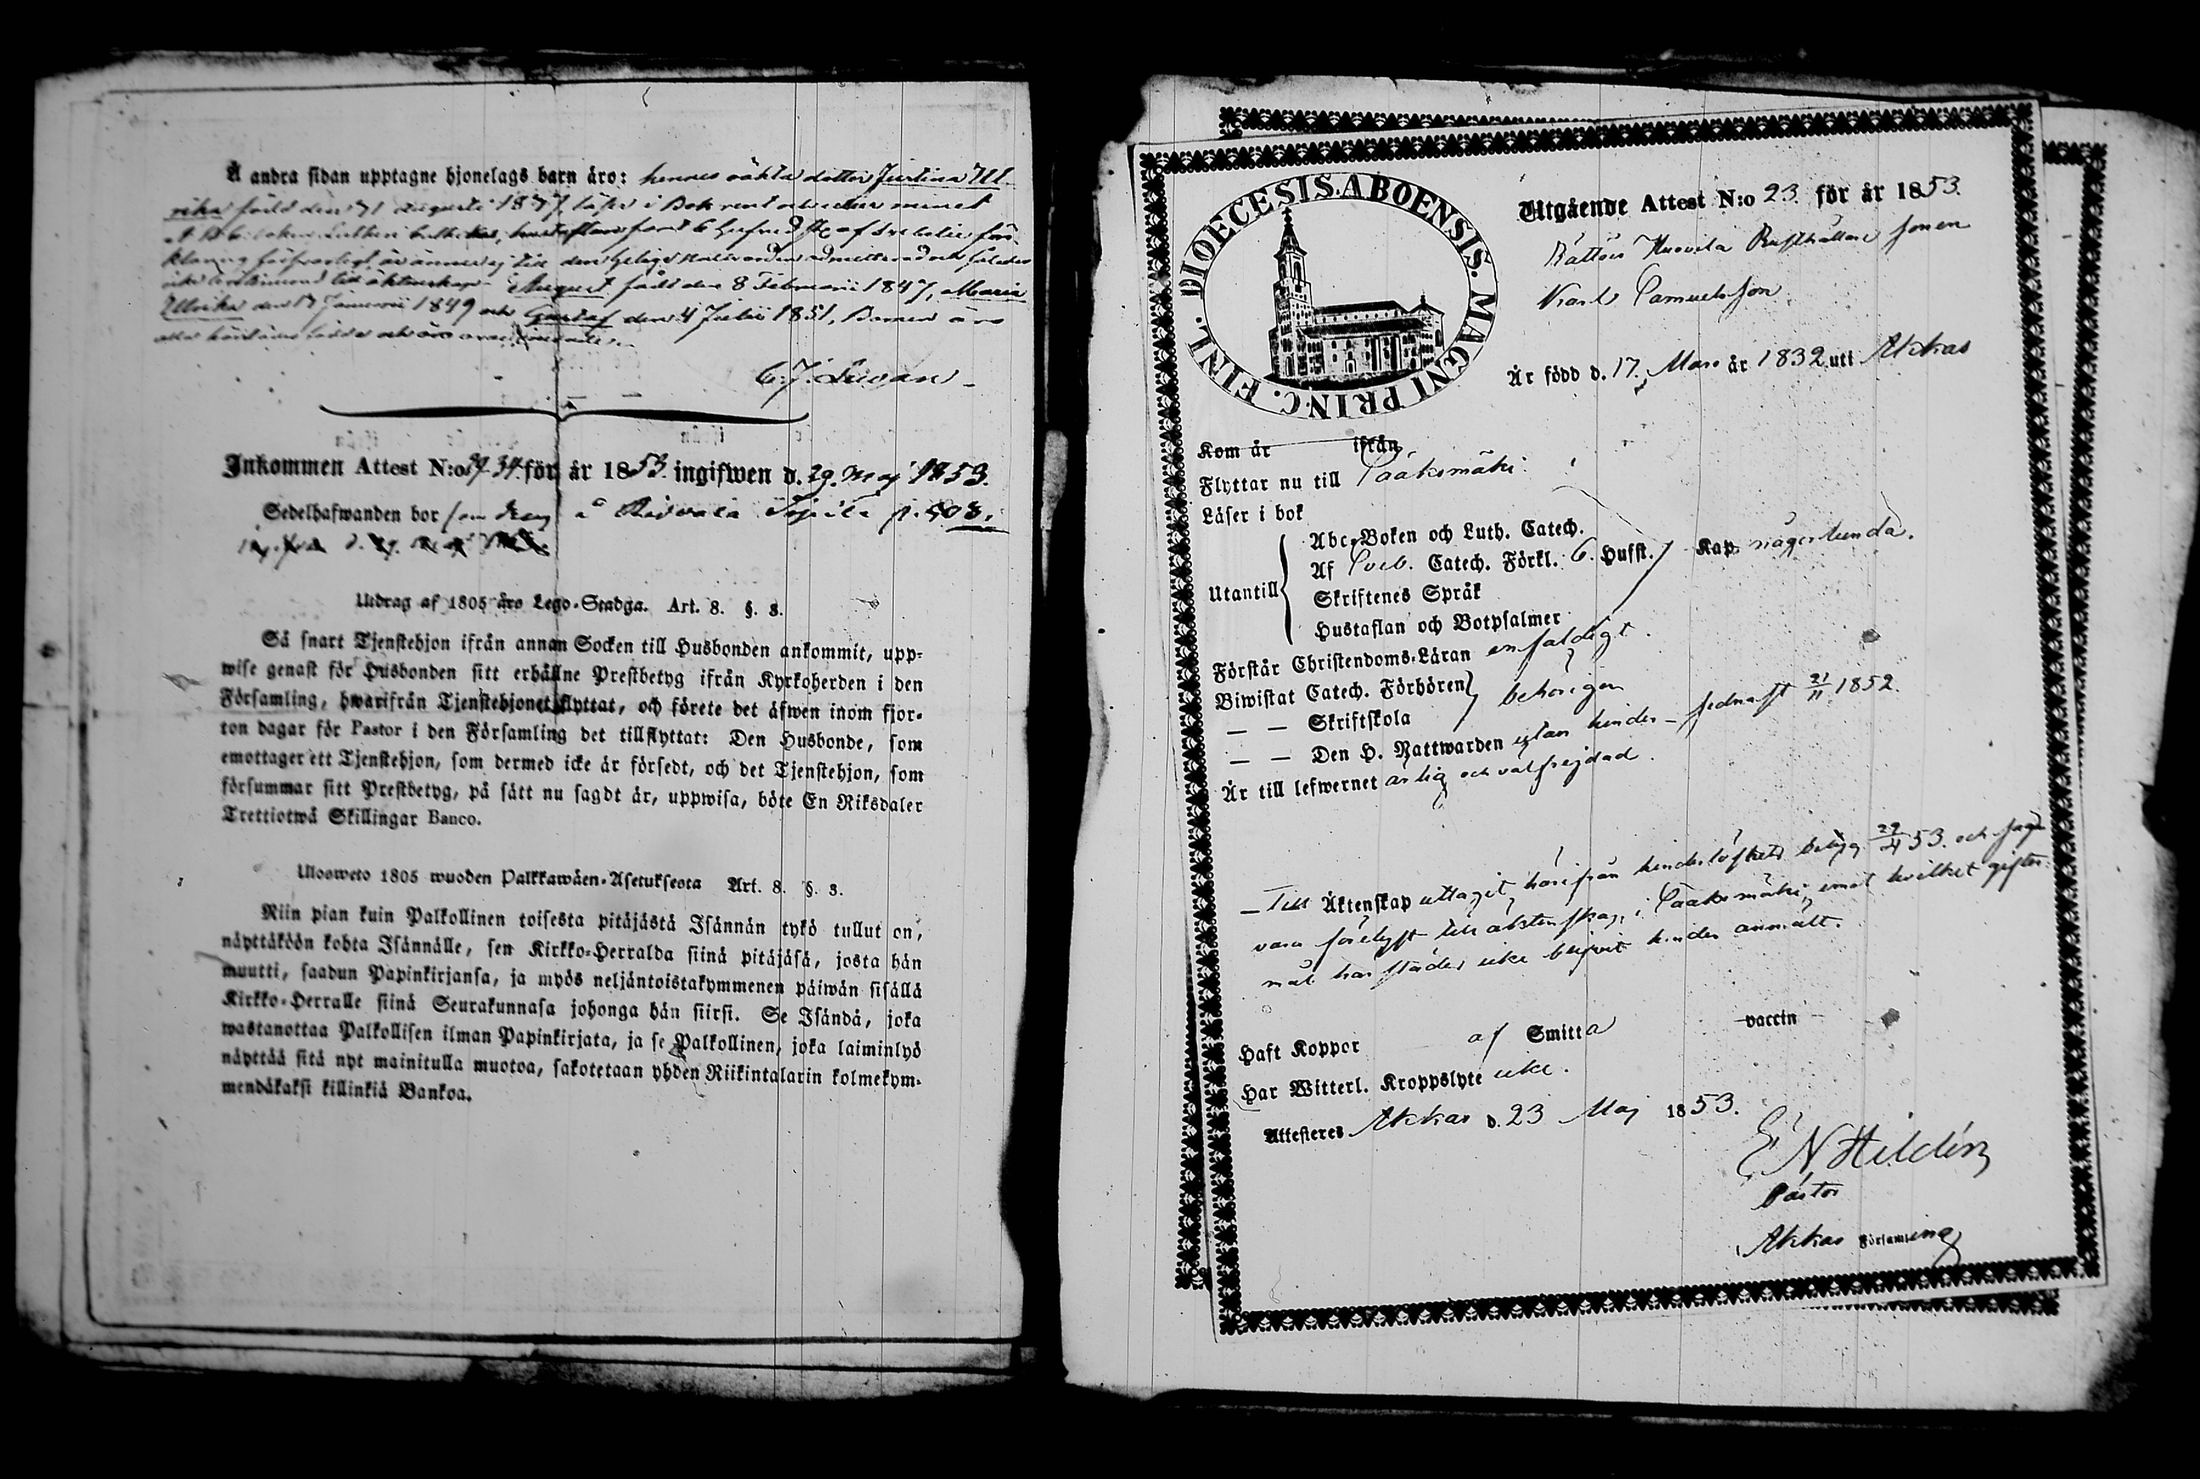 Å andra sidan upptagne hjonelags barn äro: hennes oäkta dotter Justina Ul-
rika född den 31 Augusti 1837, läser i Bok rent
A B C boken Lutheri hustaflan samt 6 Hufvud st. af Svebelii för-
klaring försvarligt, är ännu ej till den helige nattvarden admitterad och således
icke till äktenskap. August född den 8 Februarii 1847, Maria
Ulrika den 17 Januarii 1849 och Gustaf den 4 Julii 1851, Barnen äro
alla födde och äro
C. J.
Inkommen Attest N:o 34 för år 1853. ingifwen d. 29. Maj 1853.
Sedelhafwanden bor som dräng å Ridvala p. 503.
Utdrag af 1805 års Lego-Stadga. Art. 8. §. 3.
Så snart Tjenstehjon ifrån annan Socken till Husbonden ankommit, upp-
wise genast för Husbonden sitt erhållne Prestbetyg ifrån Kyrkoherden i den
Församling, hwarifrån Tjenstehjonet flyttat, och förete det äfwen inom fjor-
ton dagar för Pastor i den Församling det tillflyttat: Den Husbonde, som
emottager ett Tjenstehjon, som dermed icke är försedt, och det Tjenstehjon, som
försummar sitt Prestbetyg, på sätt nu sagdt är, uppwisa, böte En Riksdaler
Trettiotwå Skillingar Banco.
Ulosweto 1805 wuoden Palkkawäen-Asetuksesta Art. 8. §. 3.
Niin pian kuin Palkollinen toisesta pitäjästä Isännän tykö tullut on,
näyttäköön kohta Isännälle, sen Kirkko-Herralda siinä pitäjäsä, josta hän
muutti, saadun Papinkirjansa, ja myös neljäntoistakymmenen päiwän sisällä
Kirkko-Herralle siinä Seurakunnasa johonga hän siirsi. Se Isändä, joka
wastanottaa Palkollisen ilman Papinkirjata, ja se Palkollinen, joka laiminlyö
näyttää sitä nyt mainitulla muotoa, sakotetaan yhden Riikintalarin kolmekym-
mendäkaksi killinkiä Bankoa.
DIOECESIS. ABOENSIS. MAGNI PRINC. FINL.
Utgående Attest N:o 23 för år 1853.
Rättöis Huovila Rusthållare sonen
Karl Samuelsson
Är född d. 17 Mars år 1832 uti Akkas
Kom år ifrån
Flyttar nu till Sääksmäki
Läser i bok
Utantill
Abc-Boken och Luth. Catech.
Af Sveb. Catech. Förkl. 6. Hufst. Kap. någorlunda.
Skriftenes Språk
Hustaflan och Botpsalmer
Förstår Christendoms-Läran enfaldigt.
Biwistat Catech. Förhören
— — Skriftskola behörigen
— — Den H. Nattwarden utan hinder – sednast 21/11 1852.
Är till lefwernet ärlig och välfrejdad.
– Till Äktenskap uttagit härifrån hinderlöshets betyg 29/4 53. och säges
vara förelyst till äktenskap i Sääksmäki, emot hvilket gifter-
mål härstädes icke blifvit hinder anmält.
Haft Koppor af Smitta vaccin
Har Witterl. Kroppslyte icke.
Attesteres Akkas d. 23 Maj 1853.
E N Hildén
Pastor
Akkas Församling